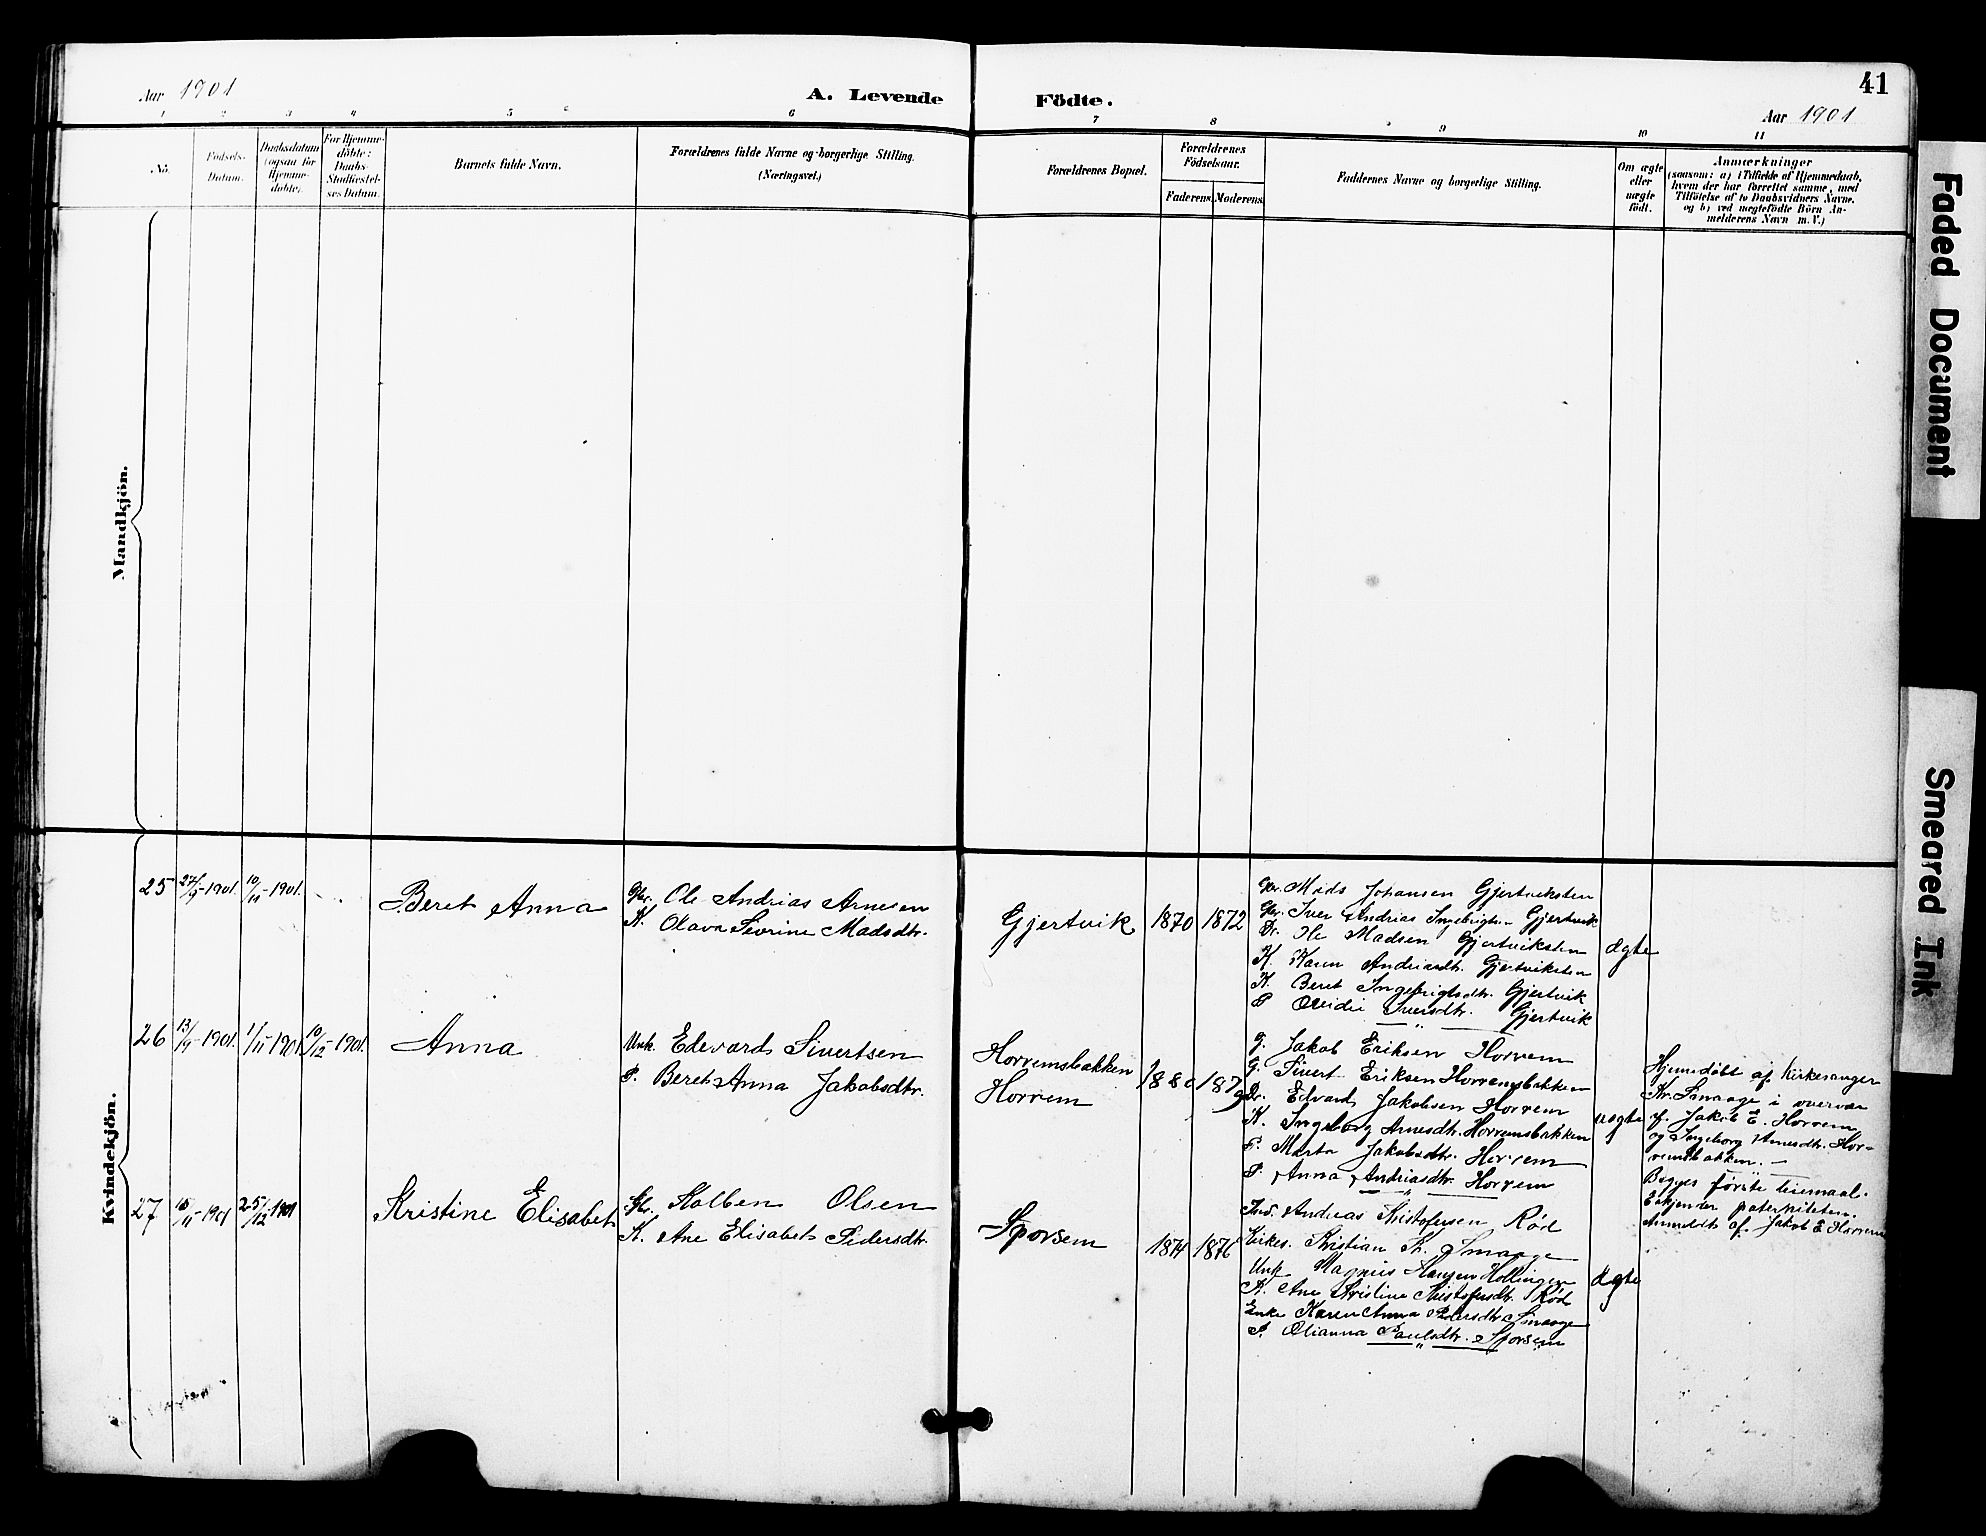 Aar 1901
A. Levende Födte.
41
Aar 1901
1 2 3 4 5 6 7 8 9 10 11
No.
Födsels-Datum.
Daabsdatum (ogsaa för Hjemmedöbte).
For Hjemmedöbte: Daabs Stadfæstelses Datum.
Barnets fulde Navn.
Forældrenes fulde Navne og borgerlige Stilling. (Næringsvei.)
Forældrenes Bopæl.
Forældrenes Födselsaar.
Faderens. Moderens.
Faddernes Navne og borgerlige Stilling.
Om ægte eller uægte födt.
Anmærkninger
(saasom: a) i Tilfælde af Hjemmedaab,
hvem der har forrettet samme, med
Tilföielse af to Daabsvidners Navne,
og b) ved uægtefödte Börn An-
melderens Navn m. V.)
Mandkjön.
Kvindekjön.
25 24/9-1901. 10/11-1901.
Beret Anna
Gbr. Ole Andrias Arnesen
K. Olava Sevrine Madsdtr.
Gjertvik 1870 1872
Gbr. Mads Johansen Gjertviksten
Gbr. Iver Andrias Ingebrigtsen Gjertvik
Dr. Ole Madsen Gjertviksten
K. Karen Andriasdtr. Gjertviksten
K. Beret Ingebrigtsdtr. Gjertvik
P. Iversdtr. Gjertvik
ægte
26 13/9-1901. 1/11-1901. 10/12-1901.
Anna
Unk. Edevard Sivertsen
P. Beret Anna Jakobsdtr.
Horremsbakken
Horrem
1880 1879
G. Jakob Eriksen Horrem
G. Sivert Eriksen Horremsbakken
Dr. Edvard Jakobsen Horrem
K. Ingeborg Arnesdtr. Horremsbakken
P. Marta Jakobsdtr. Horrem
P. Anna Andriasdtr. Horrem
uægte
Hjemmedöbt af kirkesanger
Kr. Smaage i overvær
af Jakob E. Horrem
og Ingeborg Arnesdtr. Hor-
remsbakken. —
Begges förste leiermaal.
Erkjender paterniteten.
Anmeldt af Jakob E Horrem
27 10/11-1901 25/12-1901
Kristine Elisabet
Gbr. Kolben Olsen
K. Ane Elisabet Pedersdtr.
Sporsem
1874 1876
Ind. Andreas Kristofersen Röd
Kirkes. Kristian K. Smaage
Unk. Magnus Hansen Hollingen
K. Ane Kristine Kristofersdtr. Röd
Enke Karen Anna Pedersdtr Smaage
P. Olianna Paulsdtr. Sporsem
ægte
Faded Document
Smeared Ink